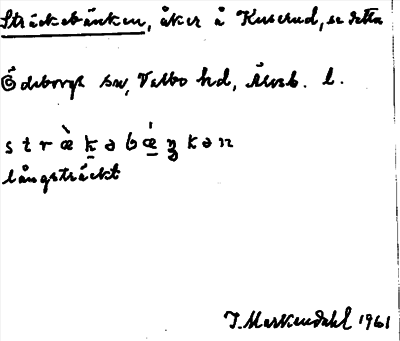 Sträckebänken, åker å Kuserud, se detta
Ödeborgs sn, Valbo hd, Älvsb. l.
s t r æ̀ k ə b ǽ ŋ k ə n
långsträckt
J. Markendahl 1961